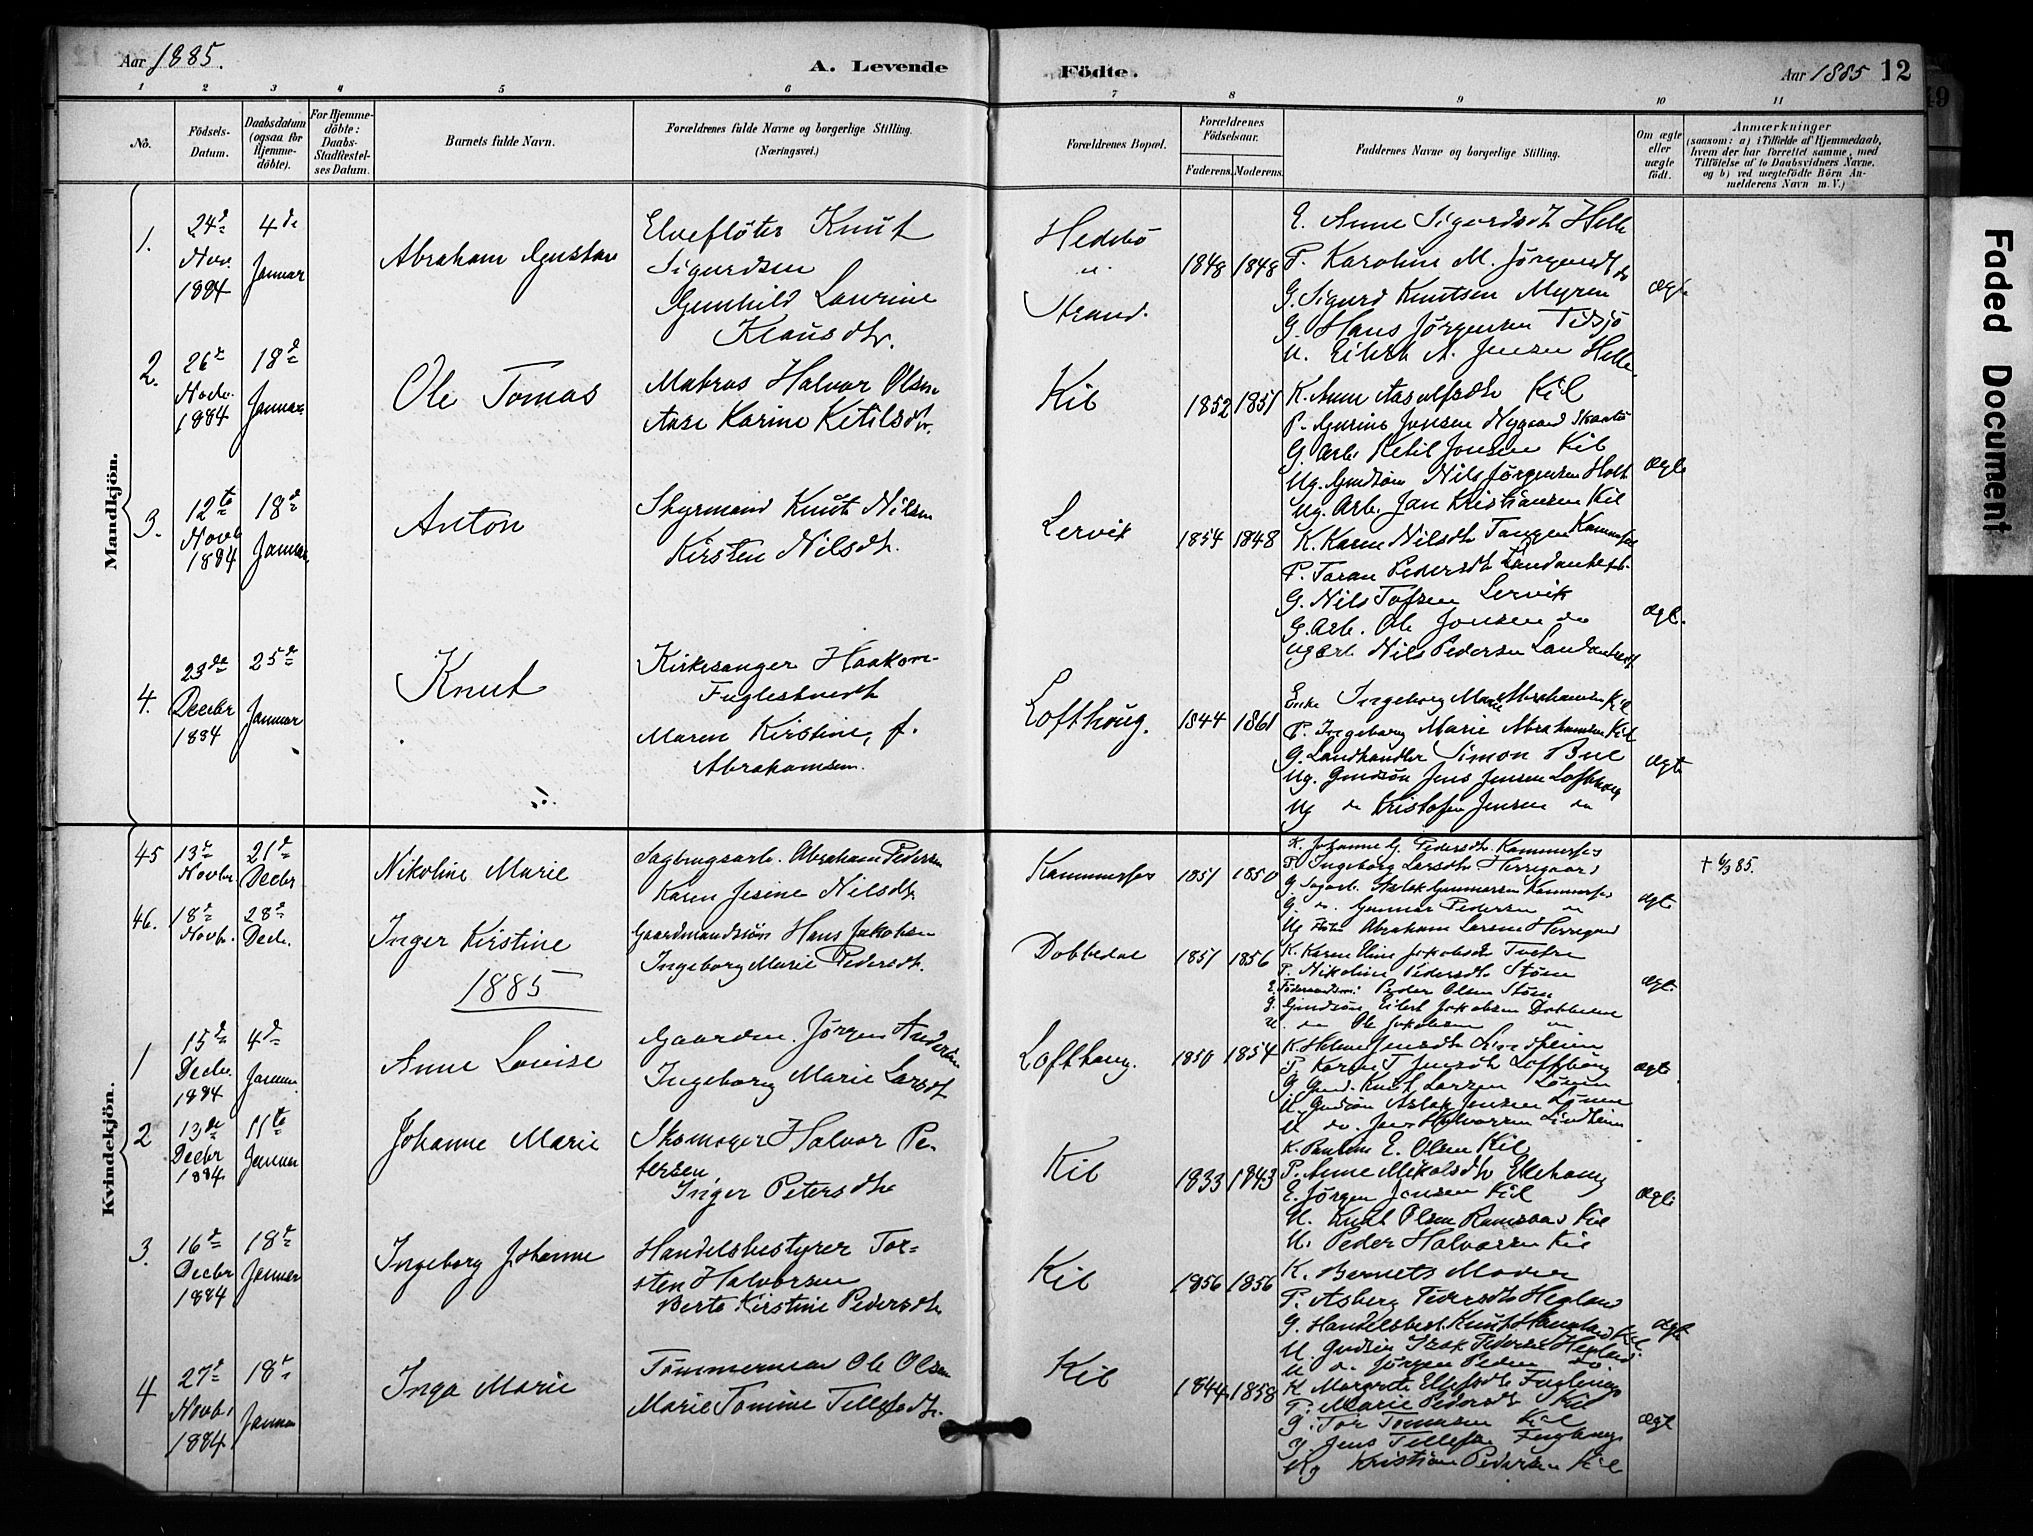 Aar 1885. A. Levende Födte. Aar 1885 12
1 2 3 4 5 6 7 8 9 10 11
No. Födsels-Datum. Daabsdatum (ogsaa for Hjemmedöbte). For Hjemmedöbte: Daabs-Stadfæstelses Datum. Barnets fulde Navn. Forældrenes fulde Navne og borgerlige Stilling. (Næringsvei.) Forældrenes Bopæl. Forældrenes Födselsaar. Faderens. Moderens. Faddernes Navne og borgerlige Stilling. Om ægte eller uægte födt. Anmærkninger (saasom: a) i Tilfælde af Hjemmedaab, hvem der har forrettet samme, med Tilföielse af to Daabsvidners Navne, og b) ved uægtefödte Börn Anmelderens Navn m. V.)
Mandkjön.
1. 24de Nov. 1884 4de Januar Abraham Gustav
Elveflöter Knut
Sigurdsen
Gunhild Laurine
Klausdtr.
Hedsbö
Strand.
1848 1848
E. Anne Sigurdsdt Helle
P. Karoline M. Jørgensdt do
G. Sigurd Knutsen Myren
G. Hans Jørgensen Tidsjö
U. Eilert A. Jensen Helle
ægt.
2. 26de Novbr. 1884 18de Januar Ole Tomas
Matros Halvor Olsen
Aase Karine Ketilsdtr.
Kil
1852 1851
K. Anne Aasulfsdtr Kil
P. Gurine Jensen Nygaard Skaatö
G. Arb. Ketil Jonsen Kil
Ug. Gmdsön Nils Jørgensen Holt
Ug. Arb. Jan Kristiansen Kil
ægte
3. 12te Novbr 1884 18de Januar Anton
Styrmand Knut Nilsen
Kirsten Nilsdtr.
Lervik
1854 1848
K. Karen Nilsdtr Tangen Kammerfos
P. Taran Pedersdtr
G. Nils Tofsen Lervik
G. Arb. Ole Jonsen do
Ug arb. Nils Pedersen
ægt.
4. 23de Decbr 1884 25de Januar Knut
Kirkesanger Haakon
Fuglestvedt
Maren Kirstine, f.
Abrahamsen.
Lofthoug.
1844 1861
Enke Ingeborg Marie Abrahamsen Kil
P. Ingeborg Marie Abrahamsen Kil
G. Landhandler Simon Bue
Ug. Gmdsön Jens Jensen Lofthoug
Ug do Kristofer Jensen do
ægte
Kvindekjön.
45 13de Novbr. 21de Decbr Nikoline Marie
Sagbrugsarb. Abraham Pedersen
Karen Jesine Nilsdtr.
Kammerfos
1851 1850
K. Johanne G. Pedersdtr. Kammerfos
P. Ingeborg Larsdtr Herregaard
G. Sagarb. Aslak Gunnarsen Kammerfos
G. do. Gunnar Pedersen do
Ug Abraham Larsen Herregaard
ægte
† 6/3 85.
46. 18de Novbr. 28de Decbr. Inger Kirstine
Gaardmandssön Hans Jakobsen
Ingeborg Marie Pedersdtr.
Dobbedal
1851 1856
K. Karen Eline Jakobsdtr
P. Nikoline Pedersdtr Støen
Peder Olsen Støen
G. Gmdsön Eilert Jakobsen Dobbedal
U. do Ole Jakobsen do
ægt.
1885
1 15de Decbr. 1884 4de Januar Anne Lovise
Gaardm. Jørgen Andersen
Ingeborg Marie Larsdt
Lofthoug.
1850 1854
K. Helene Jensdtr Lindheim
P. Karen T. Jensdt Lofthoug
G. Gmd. Knut Larsen
U. Gmdsön Aslak Jensen
U do. Jens Halvorsen Lindheim
ægte
2 13de Decbr 1884 11te Januar Johanne Marie
Skomager Halvor Petersen
Inger Petersdtr
Kil
1833 1843
K. Pauline E. Olsen Kil
P. Anne Mikalsdtr Ellehaug
E. Jørgen Jensen Kil
U. Knut Olsen Kil
U. Peder Halvorsen Kil
ægte
3. 16de Decbr 1884 18de Januar Ingeborg Johanne
Handelsbestyrer Tor-
sten Halvorsen
Berte Kirstine Pedersdtr.
Kil
1856 1856
K. Barnets Moder
P. Asberg Pedersdtr Hegland
G. Handelsbest. Knut Kil
U. Gmdsön Isak Pedersen Hegland
U. d. Jørgen Peder do.
ægt
4 27de Novbr. 1884 18de Januar Inga Marie
Tømmermand Ole Olsen
Marie Tomine Tellefsdtr.
Kil
1844 1858
K. Margrete Ellefsdtr
P. Marie Pedersdt Kil
G. Tor Tomasen Kil
Y. Jens Tellefsen
Ug Kristian Pedersen Kil
ægt
Faded Document
49